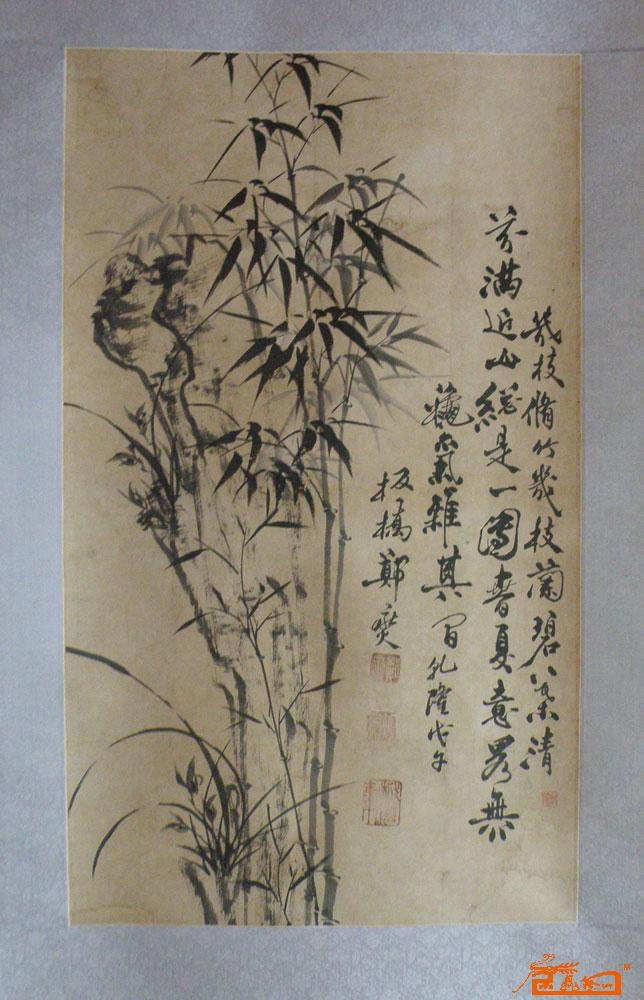 幾枝脩竹幾枝蘭碧葉清
芬滿近山總是一團春夏意畧無
龝氣雜其間乾隆戊午
板橋鄭燮